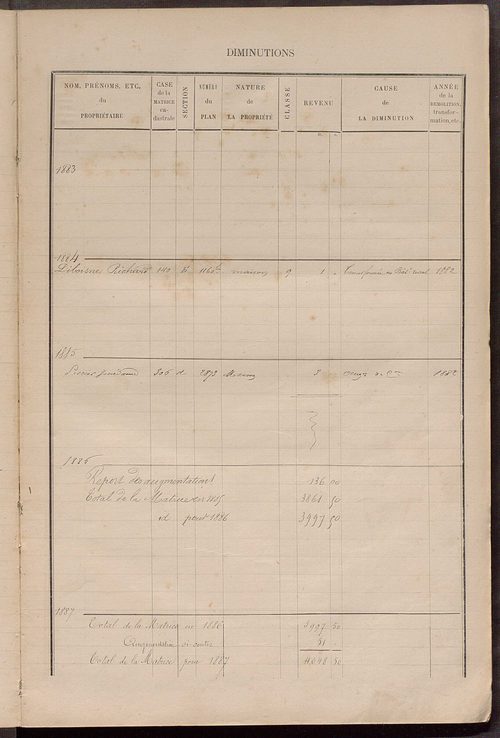 DIMINUTIONS
NOM, PRÉNOMS, ETC,
du
PROPRIÉTAIRE
CASE
de la
MATRICE
ca-
dastrale
SECTION
NUMÉRO
du
PLAN
NATURE
de
LA PROPRIÉTÉ
CLASSE
REVENU
CAUSE
de
LA DIMINUTION
ANNÉE
de la
DÉMOLITION,
transfor-
mation, etc.
1883
1884
140 maison 9 1 rural 1882
1885
306 d 2893 Maison 3 1882
1886
Report des augmentations 136 00
Total de la Matrice en 1885 3861 50
id pour 1886 3997 50
1887
Total de la Matrice en 1886 3997 50
Augmentation ci-contre 51
Total de la Matrice pour 1887 4048 50